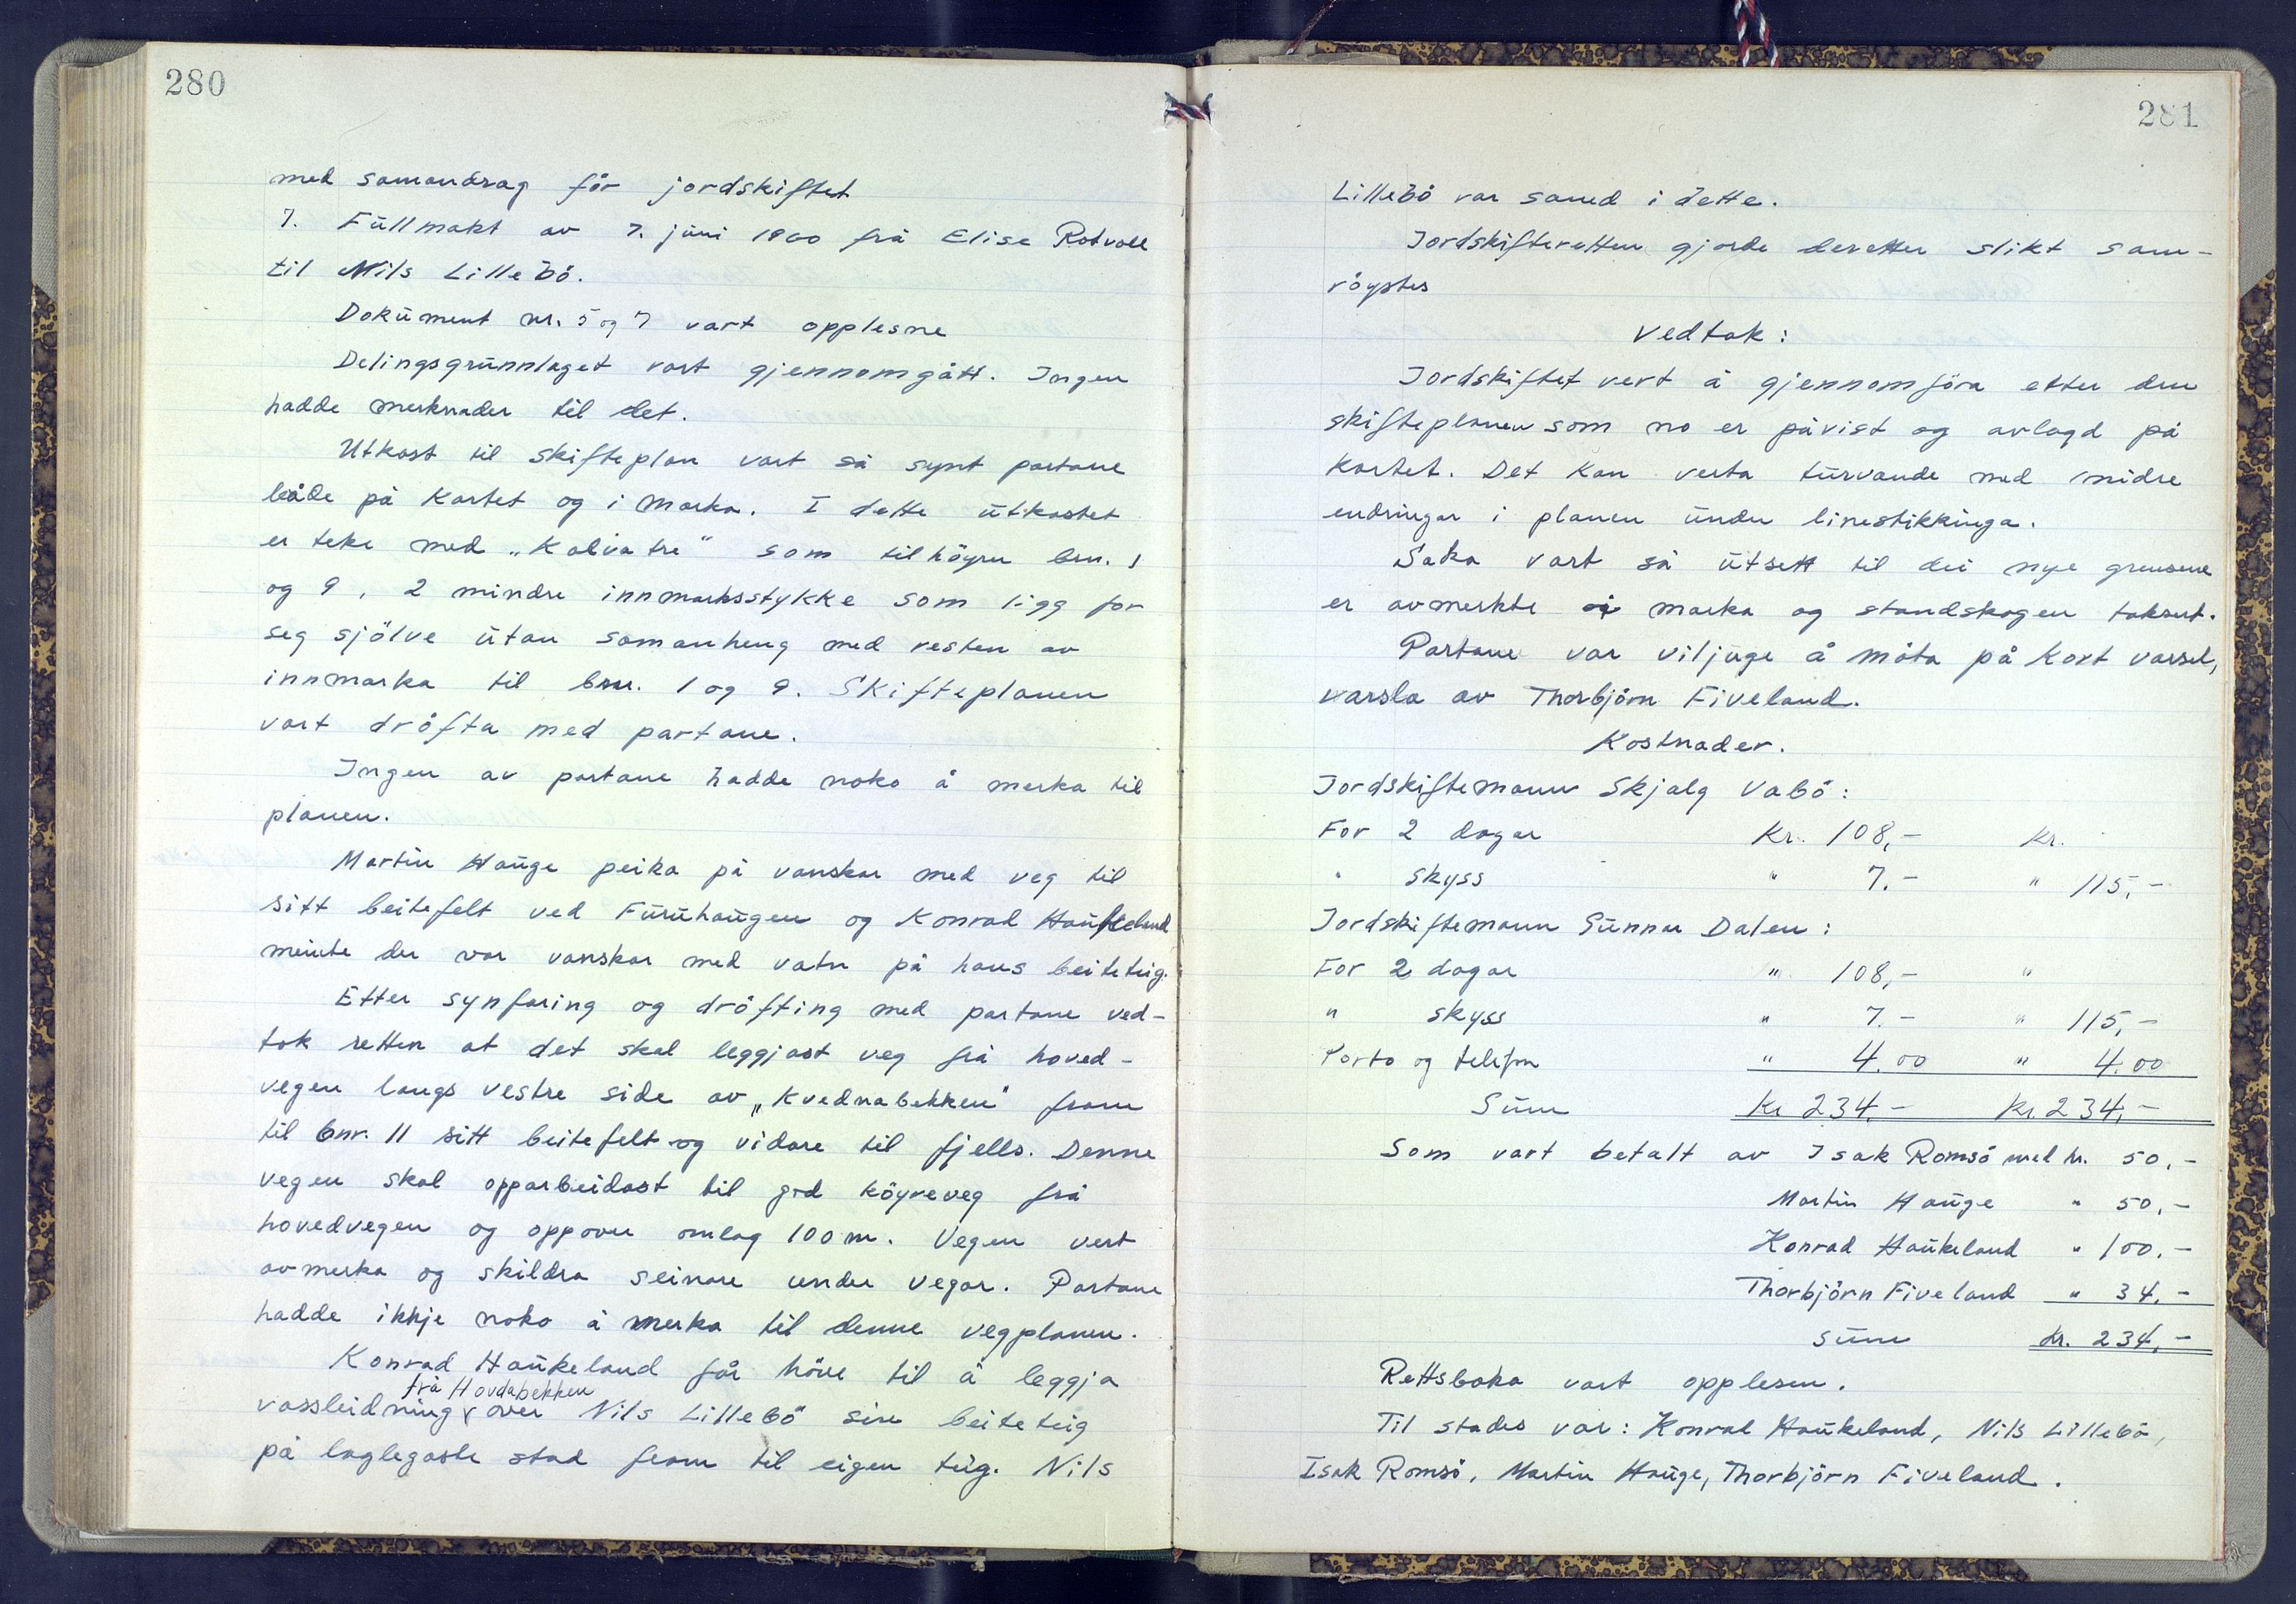 280
med samandrag får jordskiftet
7. Fullmakt av 7. juni 1960 frå Elise Rotvoll
til Nils Lillebö.
Dokument nr. 5 og 7 vart opplesne
Delingsgrunnlaget vart gjennomgått. Ingen
hadde merknader til det.
Utkast til skifteplan vart så synt partane
både på kartet og i marka. I dette utkastet
er teke med „Kalvatre" som tilhöyrer bnr. 1
og 9, 2 mindre innmarksstykke som ligg for
seg sjölve utan samanheng med resten av
innmarka til bnr. 1 og 9. Skifteplanen
vart dröfta med partane.
Ingen av partane hadde noko å merka til
planen.
Martin Hauge peika på vanskar med veg til
sitt beitefelt ved Furuhaugen og Konrad Haukeland
meinte der var vanskar med vatn på hans beiteteig.
Etter synfaring og dröfting med partane ved-
tok retten at det skal leggjast veg frå hoved-
vegen langs vestre side av „Kvednabekken" fram
til bnr. 11 sitt beitefelt og vidare til fjells. Denne
vegen skal opparbeidast til god köyreveg frå
hovedvegen og oppover omlag 100 m. Vegen vert
avmerka og skildra seinare under vegar. Partane
hadde ikkje noko å merka til denne vegplanen.
Konrad Haukeland får höve til å leggja
frå Hovdabekken
vassleidning over Nils Lillebö sin beiteteig
på laglegaste stad fram til eigen teig. Nils
281
Lillebö var samd i dette.
Jordskifteretten gjorde deretter slikt sam-
röystes
Vedtak:
Jordskiftet vert å gjennomföra etter den
skifteplanen som no er påvist og avlagd på
kartet. Det kan verta turvande med midre
endringar i planen under linestikkinga.
Saka vart så utsett til dei nye grensene
er avmerkte i marka og standskogen taksert.
Partane var viljuge å möta på kort varsel,
varsla av Thorbjörn Fiveland.
Kostnader.
Jordskiftemann Skjalg Vabö:
For 2 dagar Kr. 108,- Kr.
" skyss " 7.- " 115,-
Jordskiftemann Gunnar Dalen:
For 2 dagar " 108,- "
" skyss " 7.- " 115,-
Porto og telefon " 4.00 " 4.00
Sum Kr 234.- Kr. 234,-
Som vart betalt av Isak Romsö med kr. 50,-
Martin Hauge " 50,-
Konrad Haukeland " 100.-
Thorbjörn Fiveland " 34.-
Sum kr. 234,-
Rettsboka vart opplesen.
Til stades var: Konrad Haukeland, Nils Lillebö,
Isak Romsö, Martin Hauge, Thorbjörn Fiveland.